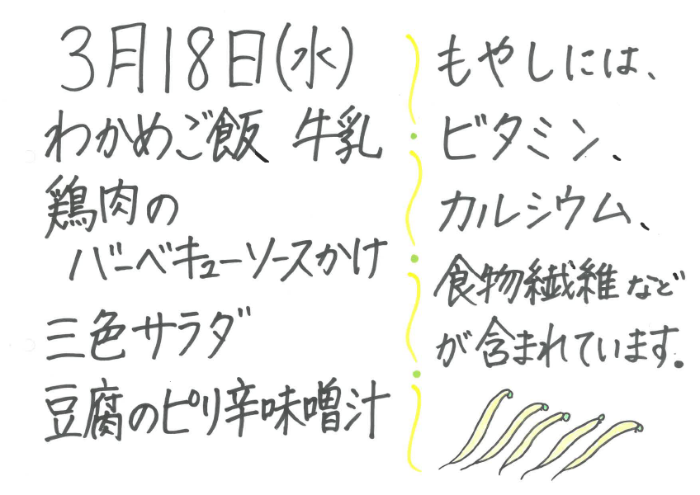 3月18日(水)
わかめご飯 牛乳
鶏肉の
バーベキューソースかけ
三色サラダ
豆腐のピリ辛味噌汁
もやしには、
ビタミン、
カルシウム、
食物繊維など
が含まれています。